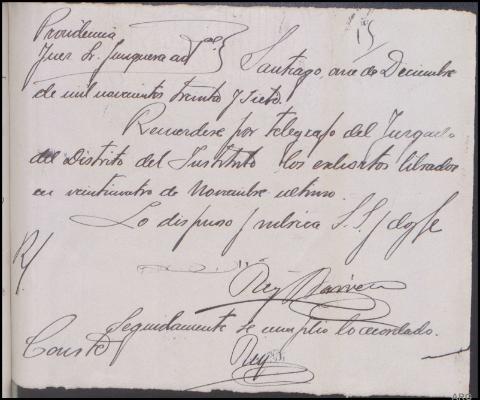 Providencia
Juez Sr. Junquera
Santiago, once de Diciembre
de mil novecientos treinta y siete.
Recuerdese por telegrafo del Juzgado
del Distrito del Instituto los exhortos librados
en veinticuatro de Noviembre ultimo.
Lo dispuso y rubrica S.S. y doy fe
R/
Rey
Seguidamente se cumplio lo acordado.
Consta
Rey
ARG